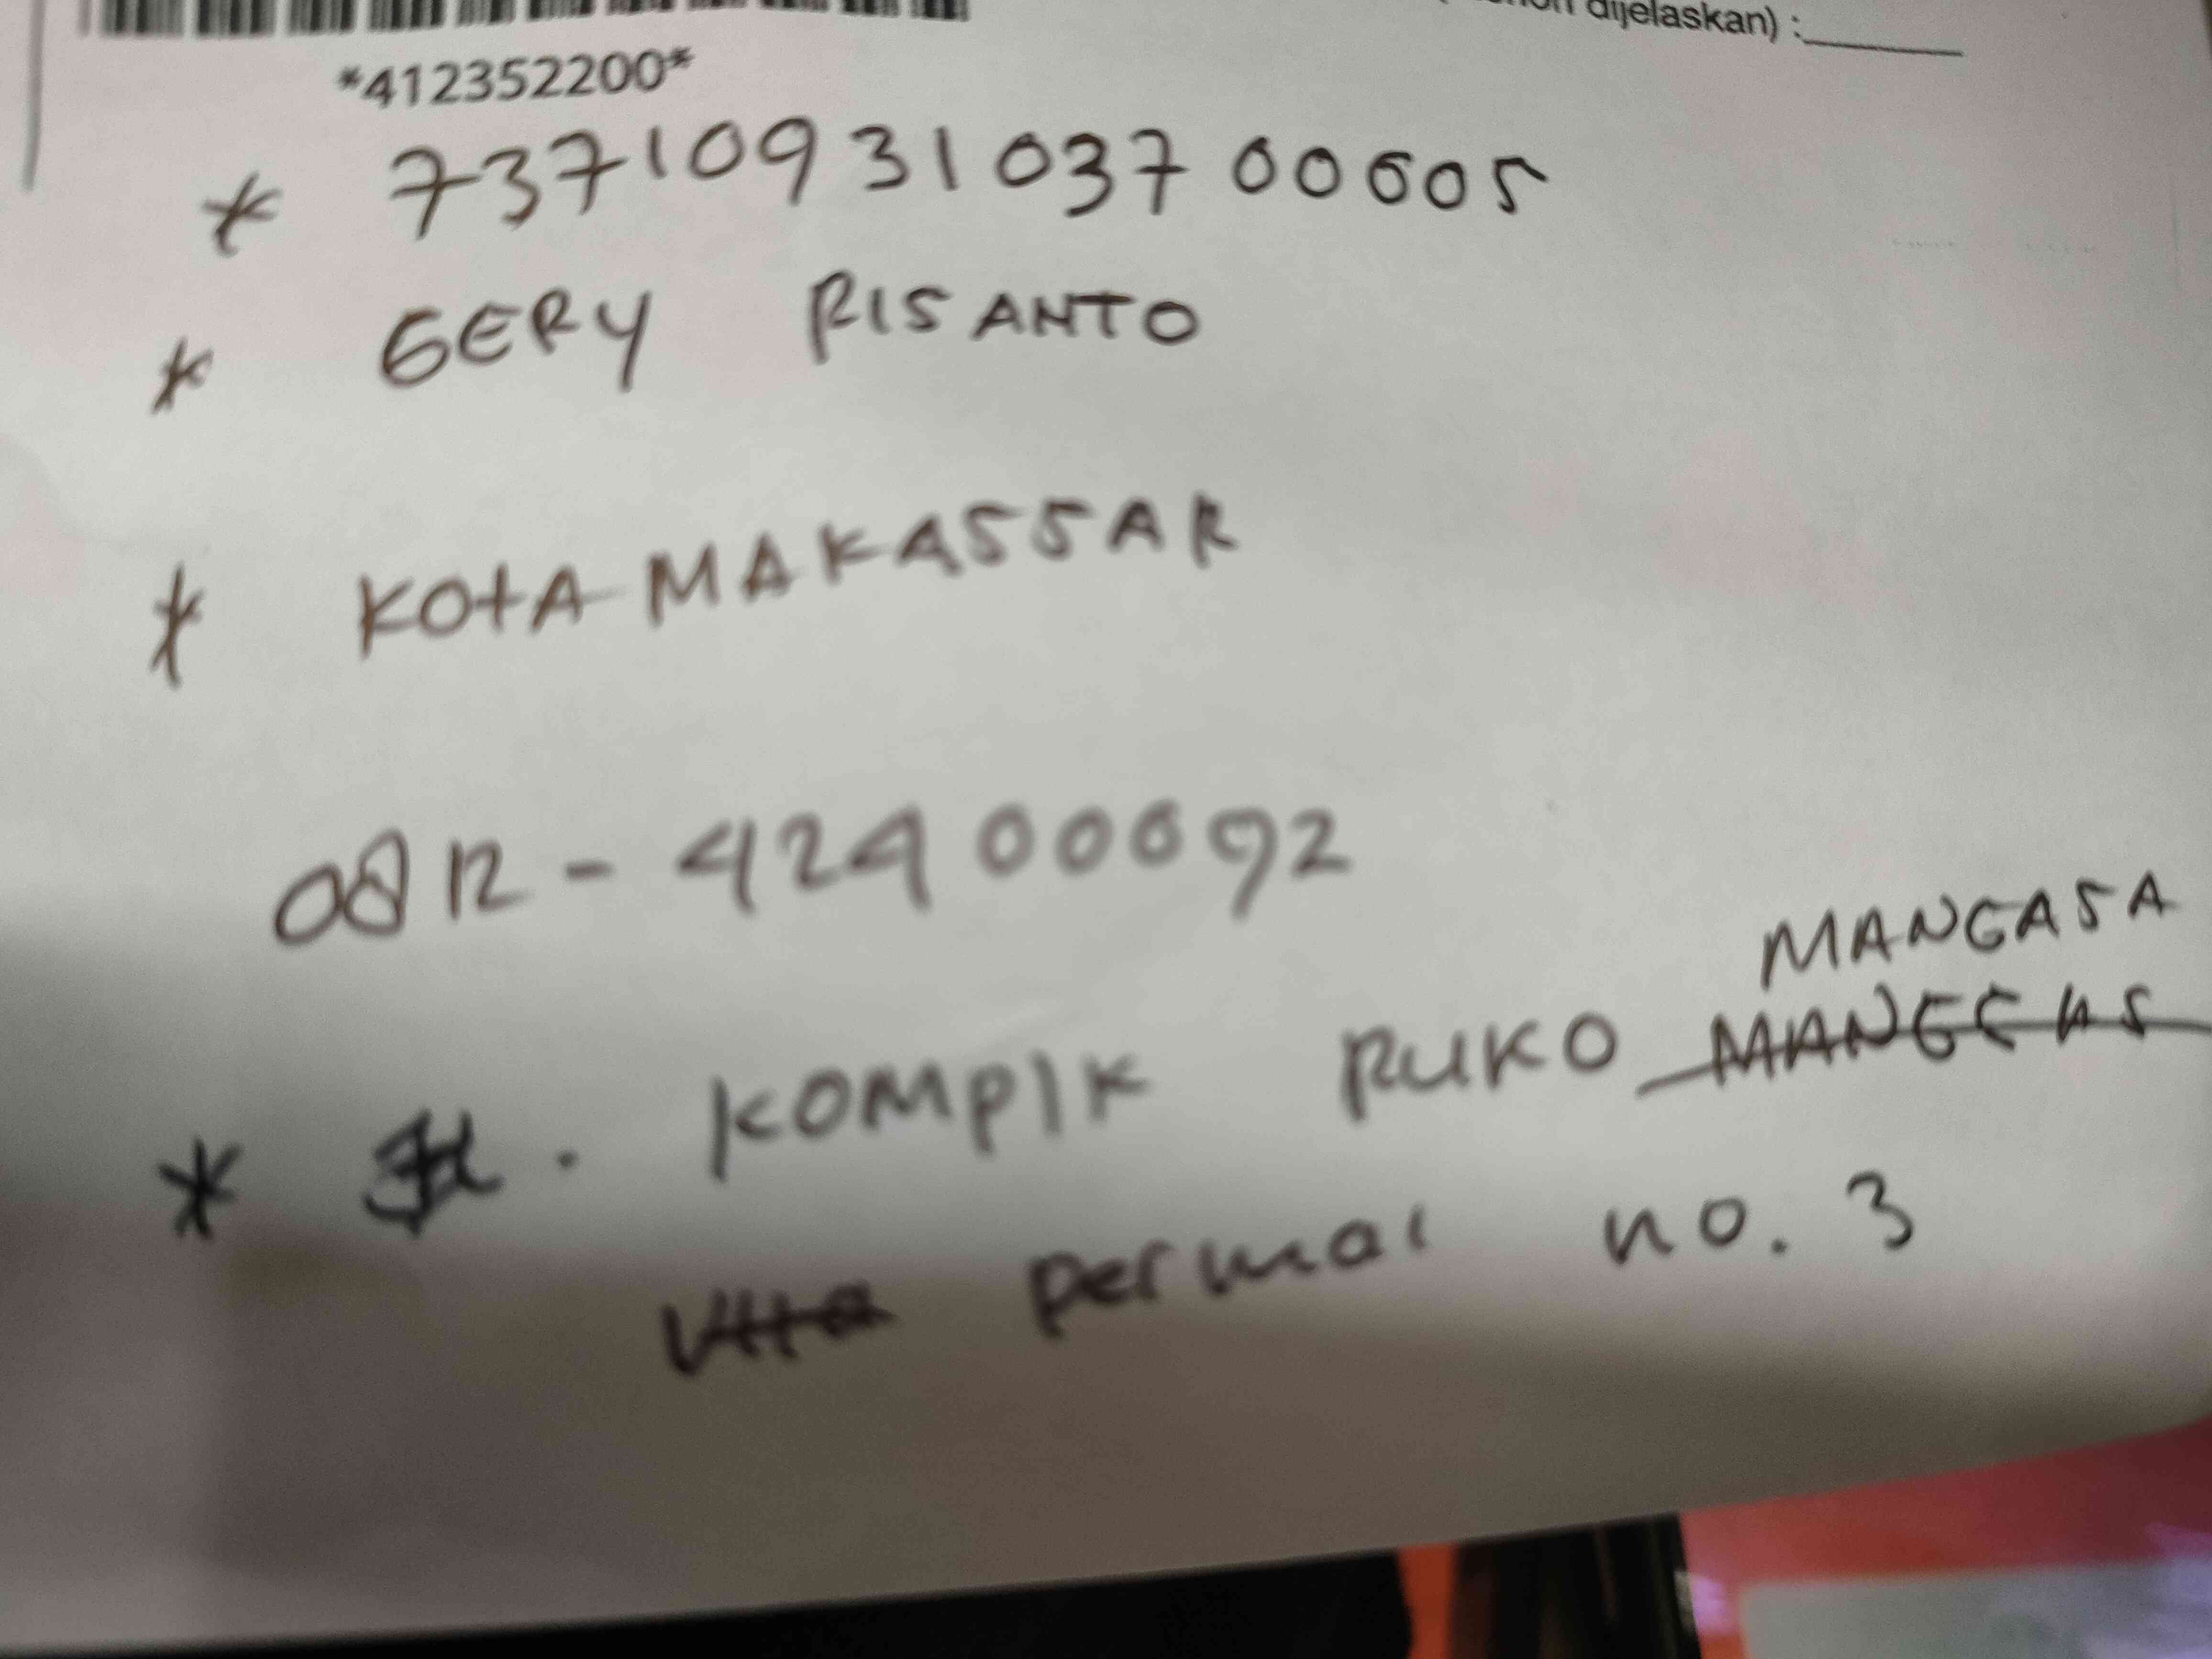 dijelaskan) :
*412352200*
* 7371093103700005
* GERY RISANTO
* KOTA MAKASSAR
0812-42400092
MANGASA
* Jl. KOMPlK RUKO
permai no. 3